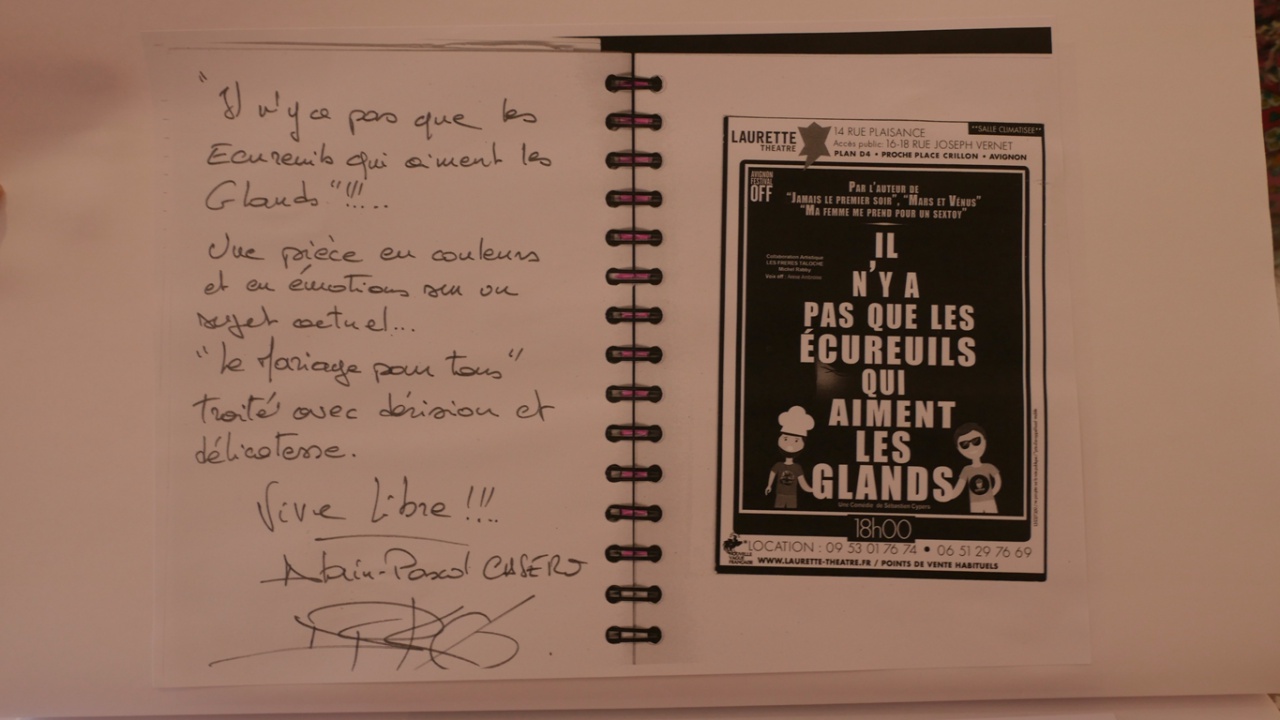 "Il n'y a pas que les
Ecureuils qui aiment les
Glands"!!!...
Une pièce en couleurs
et en émotions sur un
sujet actuel...
"Le Mariage pour tous"
traité avec dérision et
délicatesse.
Vive Libre !!!
Alain-Pascal CASERO
LAURETTE
THEATRE
14 RUE PLAISANCE
**SALLE CLIMATISEE**
Accès public: 16-18 RUE JOSEPH VERNET
PLAN D4 • PROCHE PLACE CRILLON • AVIGNON
AVIGNON
FESTIVAL
OFF
PAR L'AUTEUR DE
"JAMAIS LE PREMIER SOIR", "MARS ET VÉNUS"
"MA FEMME ME PREND POUR UN SEXTOY"
Collaboration Artistique
LES FRERES TALOCHE
Michel
Voix off :
IL
N'Y A
PAS QUE LES
ÉCUREUILS
QUI
AIMENT
LES
GLANDS
Une Comédie de Sébastien Cypers
18h00
LOCATION : 09 53 01 76 74 • 06 51 29 76 69
NOUVELLE
VAGUE
FRANÇAISE
WWW.LAURETTE-THEATRE.FR / POINTS DE VENTE HABITUELS